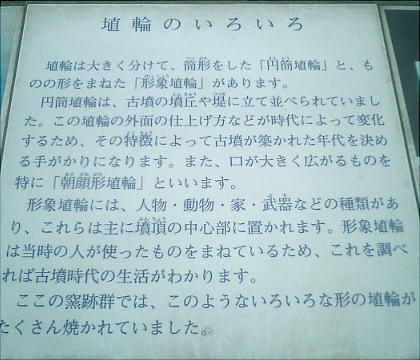 埴輪のいろいろ
埴輪は大きく分けて、筒形をした「円筒埴輪」と、も
のの形をまねた「形象埴輪」があります。
円筒埴輪は、古墳の墳丘や堤に立て並べられていまし
た。この埴輪の外面の仕上げ方などが時代によって変化
するため、その特徴によって古墳が築かれた年代を決め
る手がかりになります。また、口が大きく広がるものを
特に「朝顔形埴輪」といいます。
形象埴輪には、人物・動物・家・武器などの種類があ
り、これらは主に墳頂の中心部に置かれます。形象埴輪
は当時の人が使ったものをまねているため、これを調べ
れば古墳時代の生活がわかります。
ここの窯跡群では、このようないろいろな形の埴輪が
たくさん焼かれていました。